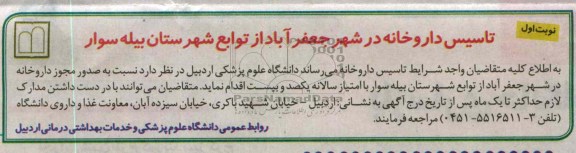 نوبت اول
تاسیس داروخانه در شهر جعفر آباد از توابع شهرستان بیله سوار
به اطلاع کلیه متقاضیان واجد شرایط تاسیس داروخانه می‌رساند دانشگاه علوم پزشکی اردبیل در نظر دارد نسبت به صدور مجوز داروخانه
در شهر جعفر آباد از توابع شهرستان بیله سوار با امتیاز سالانه یکصد و بیست اقدام نماید. متقاضیان می‌توانند با در دست داشتن مدارک
لازم حداکثر تا یک ماه پس از تاریخ درج آگهی به نشانی: اردبیل - خیابان شهید باکری، خیابان سیزده آبان، معاونت غذا و داروی دانشگاه
(تلفن ۳-۵۵۱۶۵۱۱-۰۴۵۱) مراجعه فرمایند.
روابط عمومی دانشگاه علوم پزشکی و خدمات بهداشتی درمانی اردبیل